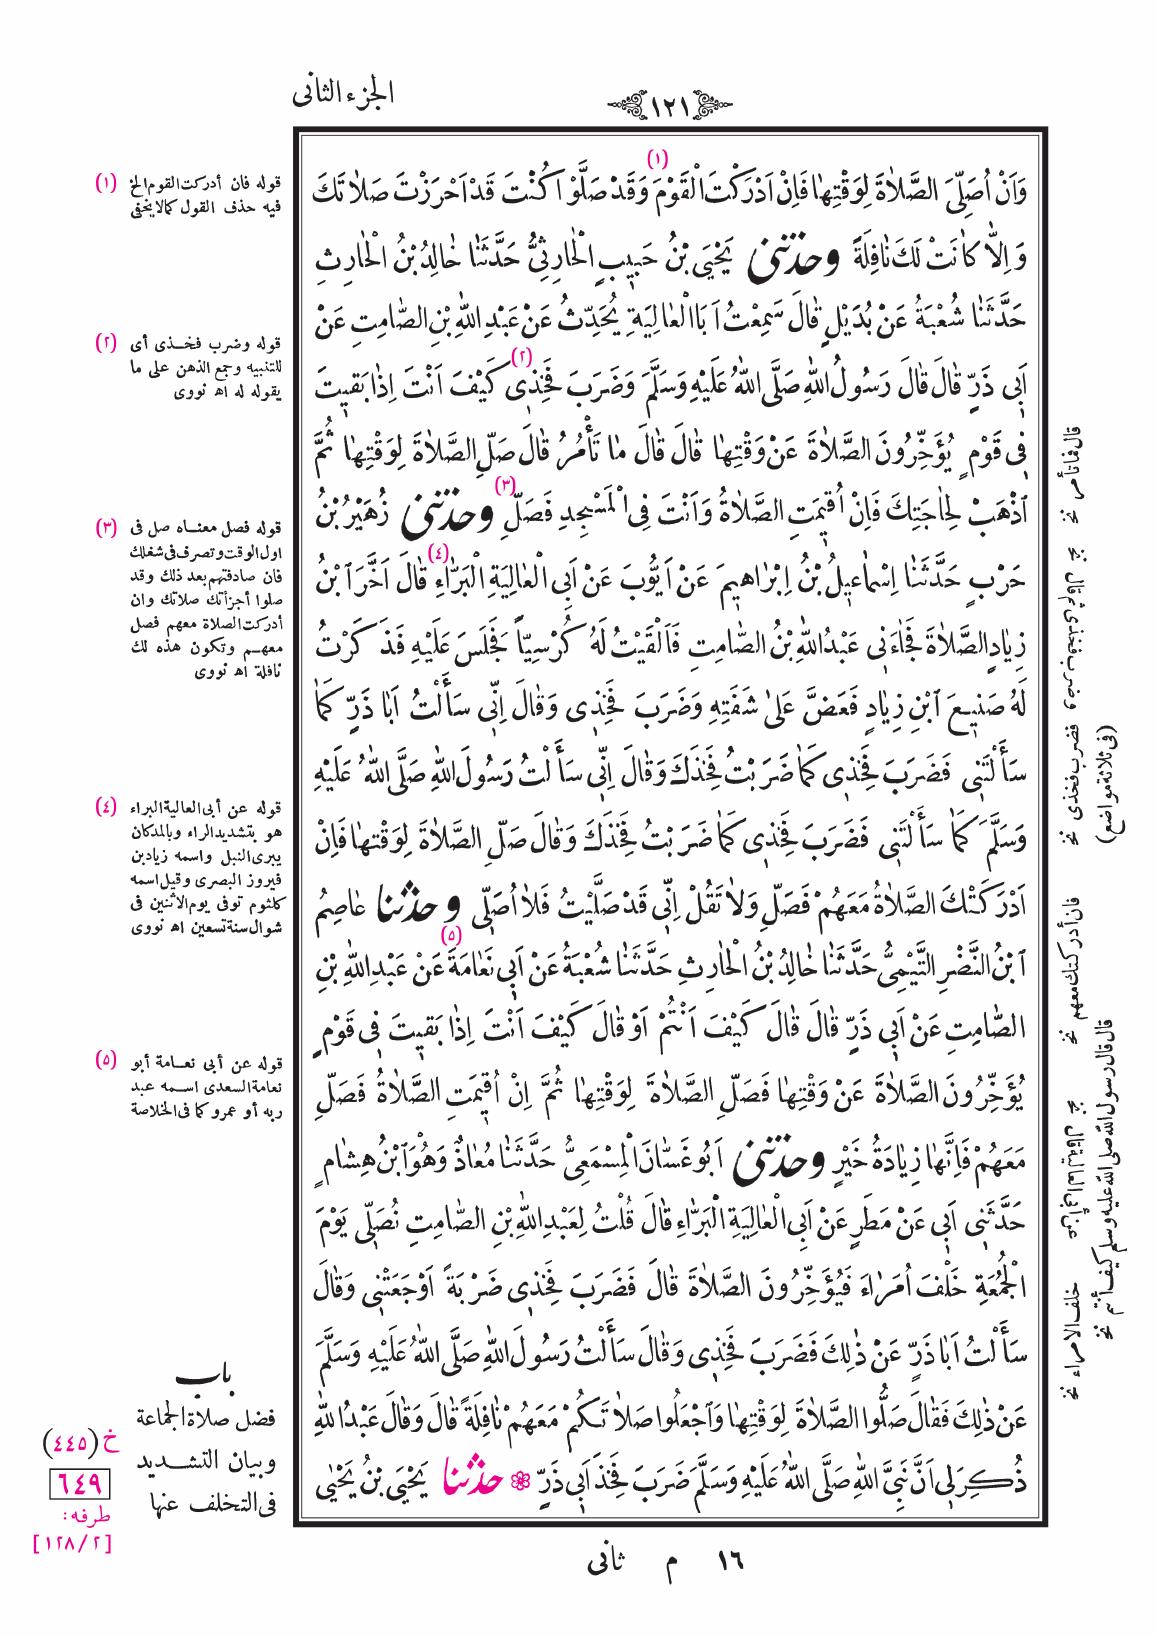 الجزء الثانى
١٢١
وَاَنْ اُصَلِّىَ الصَّلَاةَ لِوَقْتِهَا فَاِنْ اَدْرَكْتَ الْقَوْمَ (١) وَقَدْ صَلَّوْا كُنْتَ قَدْ اَحْرَزْتَ صَلَاتَكَ
وَاِلَّا كَانَتْ لَكَ نَافِلَةً وحدثنى يَحْيَى بْنُ حَبِيبٍ الْحَارِثِىُّ حَدَّثَنَا خَالِدُ بْنُ الْحَارِثِ
حَدَّثَنَا شُعْبَةُ عَنْ بُدَيْلٍ قَالَ سَمِعْتُ اَبَا الْعَالِيَةِ يُحَدِّثُ عَنْ عَبْدِ اللّٰهِ بْنِ الصَّامِتِ عَنْ
اَبِى ذَرٍّ قَالَ قَالَ رَسُولُ اللّٰهِ صَلَّى اللّٰهُ عَلَيْهِ وَسَلَّمَ وَضَرَبَ فَخِذِى (٢) كَيْفَ اَنْتَ اِذَا بَقِيتَ
فِى قَوْمٍ يُؤَخِّرُونَ الصَّلَاةَ عَنْ وَقْتِهَا قَالَ قَالَ مَا تَأْمُرُ قَالَ صَلِّ الصَّلَاةَ لِوَقْتِهَا ثُمَّ
اَذْهَبْ لِحَاجَتِكَ فَاِنْ اُقِيمَتِ الصَّلَاةُ وَاَنْتَ فِى الْمَسْجِدِ فَصَلِّ (٣) وحدثنى زُهَيْرُ بْنُ
حَرْبٍ حَدَّثَنَا اِسْمَاعِيلُ بْنُ اِبْرَاهِيمَ عَنْ اَيُّوبَ عَنْ اَبِى الْعَالِيَةِ الْبَرَّاءِ (٤) قَالَ اَخَّرَ اَبْنُ
زِيَادٍ الصَّلَاةَ فَجَاءَنِى عَبْدُ اللّٰهِ بْنُ الصَّامِتِ فَاَلْقَيْتُ لَهُ كُرْسِيًّا فَجَلَسَ عَلَيْهِ فَذَكَرْتُ
لَهُ صَنِيعَ اَبْنِ زِيَادٍ فَعَضَّ عَلَى شَفَتِهِ وَضَرَبَ فَخِذِى وَقَالَ اِنِّى سَأَلْتُ اَبَا ذَرٍّ كَمَا
سَأَلْتَنِى فَضَرَبَ فَخِذِى كَمَا ضَرَبْتُ فَخِذَكَ وَقَالَ اِنِّى سَأَلْتُ رَسُولَ اللّٰهِ صَلَّى اللّٰهُ عَلَيْهِ
وَسَلَّمَ كَمَا سَأَلْتَنِى فَضَرَبَ فَخِذِى كَمَا ضَرَبْتُ فَخِذَكَ وَقَالَ صَلِّ الصَّلَاةَ لِوَقْتِهَا فَاِنْ
اَدْرَكَتْكَ الصَّلَاةُ مَعَهُمْ فَصَلِّ وَلَا تَقُلْ اِنِّى قَدْ صَلَّيْتُ فَلَا اُصَلِّى وحدثنا عَاصِمُ
اَبْنُ النَّضْرِ التَّيْمِىُّ حَدَّثَنَا خَالِدُ بْنُ الْحَارِثِ حَدَّثَنَا شُعْبَةُ عَنْ اَبِى نَعَامَةَ (٥) عَنْ عَبْدِ اللّٰهِ بْنِ
الصَّامِتِ عَنْ اَبِى ذَرٍّ قَالَ قَالَ كَيْفَ اَنْتُمْ اَوْ قَالَ كَيْفَ اَنْتَ اِذَا بَقِيتَ فِى قَوْمٍ
يُؤَخِّرُونَ الصَّلَاةَ عَنْ وَقْتِهَا فَصَلِّ الصَّلَاةَ لِوَقْتِهَا ثُمَّ اِنْ اُقِيمَتِ الصَّلَاةُ فَصَلِّ
مَعَهُمْ فَاِنَّهَا زِيَادَةُ خَيْرٍ وحدثنى اَبُو غَسَّانَ الْمِسْمَعِىُّ حَدَّثَنَا مُعَاذٌ وَهُوَ اَبْنُ هِشَامٍ
حَدَّثَنِى اَبِى عَنْ مَطَرٍ عَنْ اَبِى الْعَالِيَةِ الْبَرَّاءِ قَالَ قُلْتُ لِعَبْدِ اللّٰهِ بْنِ الصَّامِتِ نُصَلِّى يَوْمَ
الْجُمُعَةِ خَلْفَ اُمَرَاءَ فَيُؤَخِّرُونَ الصَّلَاةَ قَالَ فَضَرَبَ فَخِذِى ضَرْبَةً اَوْجَعَتْنِى وَقَالَ
سَأَلْتُ اَبَا ذَرٍّ عَنْ ذٰلِكَ فَضَرَبَ فَخِذِى وَقَالَ سَأَلْتُ رَسُولَ اللّٰهِ صَلَّى اللّٰهُ عَلَيْهِ وَسَلَّمَ
عَنْ ذٰلِكَ فَقَالَ صَلُّوا الصَّلَاةَ لِوَقْتِهَا وَاَجْعَلُوا صَلَاتَكُمْ مَعَهُمْ نَافِلَةً قَالَ وَقَالَ عَبْدُ اللّٰهِ
ذُكِرَ لِى اَنَّ نَبِىَّ اللّٰهِ صَلَّى اللّٰهُ عَلَيْهِ وَسَلَّمَ ضَرَبَ فَخِذَ اَبِى ذَرٍّ حدثنا يَحْيَى بْنُ يَحْيَى
(١) قوله فان أدركت القوم الخ
فيه حذف القول كما لا يخفى
(٢) قوله وضرب فخذى أى
للتنبيه وجمع الذهن على ما
يقوله له اه نووى
(٣) قوله فصل معناه صل فى
اول الوقت وتصرف فى شغلك
فان صادفتهم بعد ذلك وقد
صلوا أجزأتك صلاتك وان
أدركت الصلاة معهم فصل
معهم وتكون هذه لك
نافلة اه نووى
(٤) قوله عن أبى العالية البراء
هو بتشديد الراء وبالمد كان
يبرى النبل واسمه زياد بن
فيروز البصرى وقيل اسمه
كلثوم توفى يوم الاثنين فى
شوال سنة تسعين اه نووى
(٥) قوله عن أبى نعامة أبو
نعامة السعدى اسمه عبد
ربه أو عمرو كما فى الخلاصة
باب
فضل صلاة الجماعة
وبيان التشديد
فى التخلف عنها
خ (٤٤٥)
٦٤٩
طرفه:
[١٢٨/٢]
قال فما تأمر نخ
وضرب فخذى وقال نخ
فضرب فخذى نخ
(فى ثلاثة مواضع)
فان أدركتك معهم نخ
عن أبى العالية قال نخ
قال قال رسول الله صلى الله عليه وسلم كيف أنتم نخ
خلف الامراء نخ
١٦ م ثانى